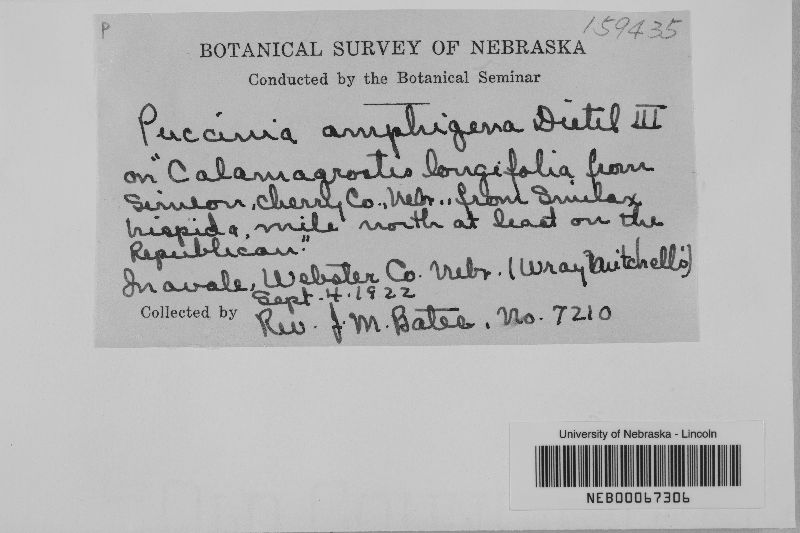 P
159435
BOTANICAL SURVEY OF NEBRASKA
Conducted by the Botanical Seminar
Puccinia amphigena Dietel III
on "Calamagrostis longifolia from
Simeon, Cherry Co., Nebr., from Smilax
hispida, mile north at least on the
Republican."
Inavale, Webster Co. Nebr. (Wray Mitchell's)
Sept. 4. 1922
Collected by Rev. J. M. Bates. No. 7210
University of Nebraska - Lincoln
NEB00067306